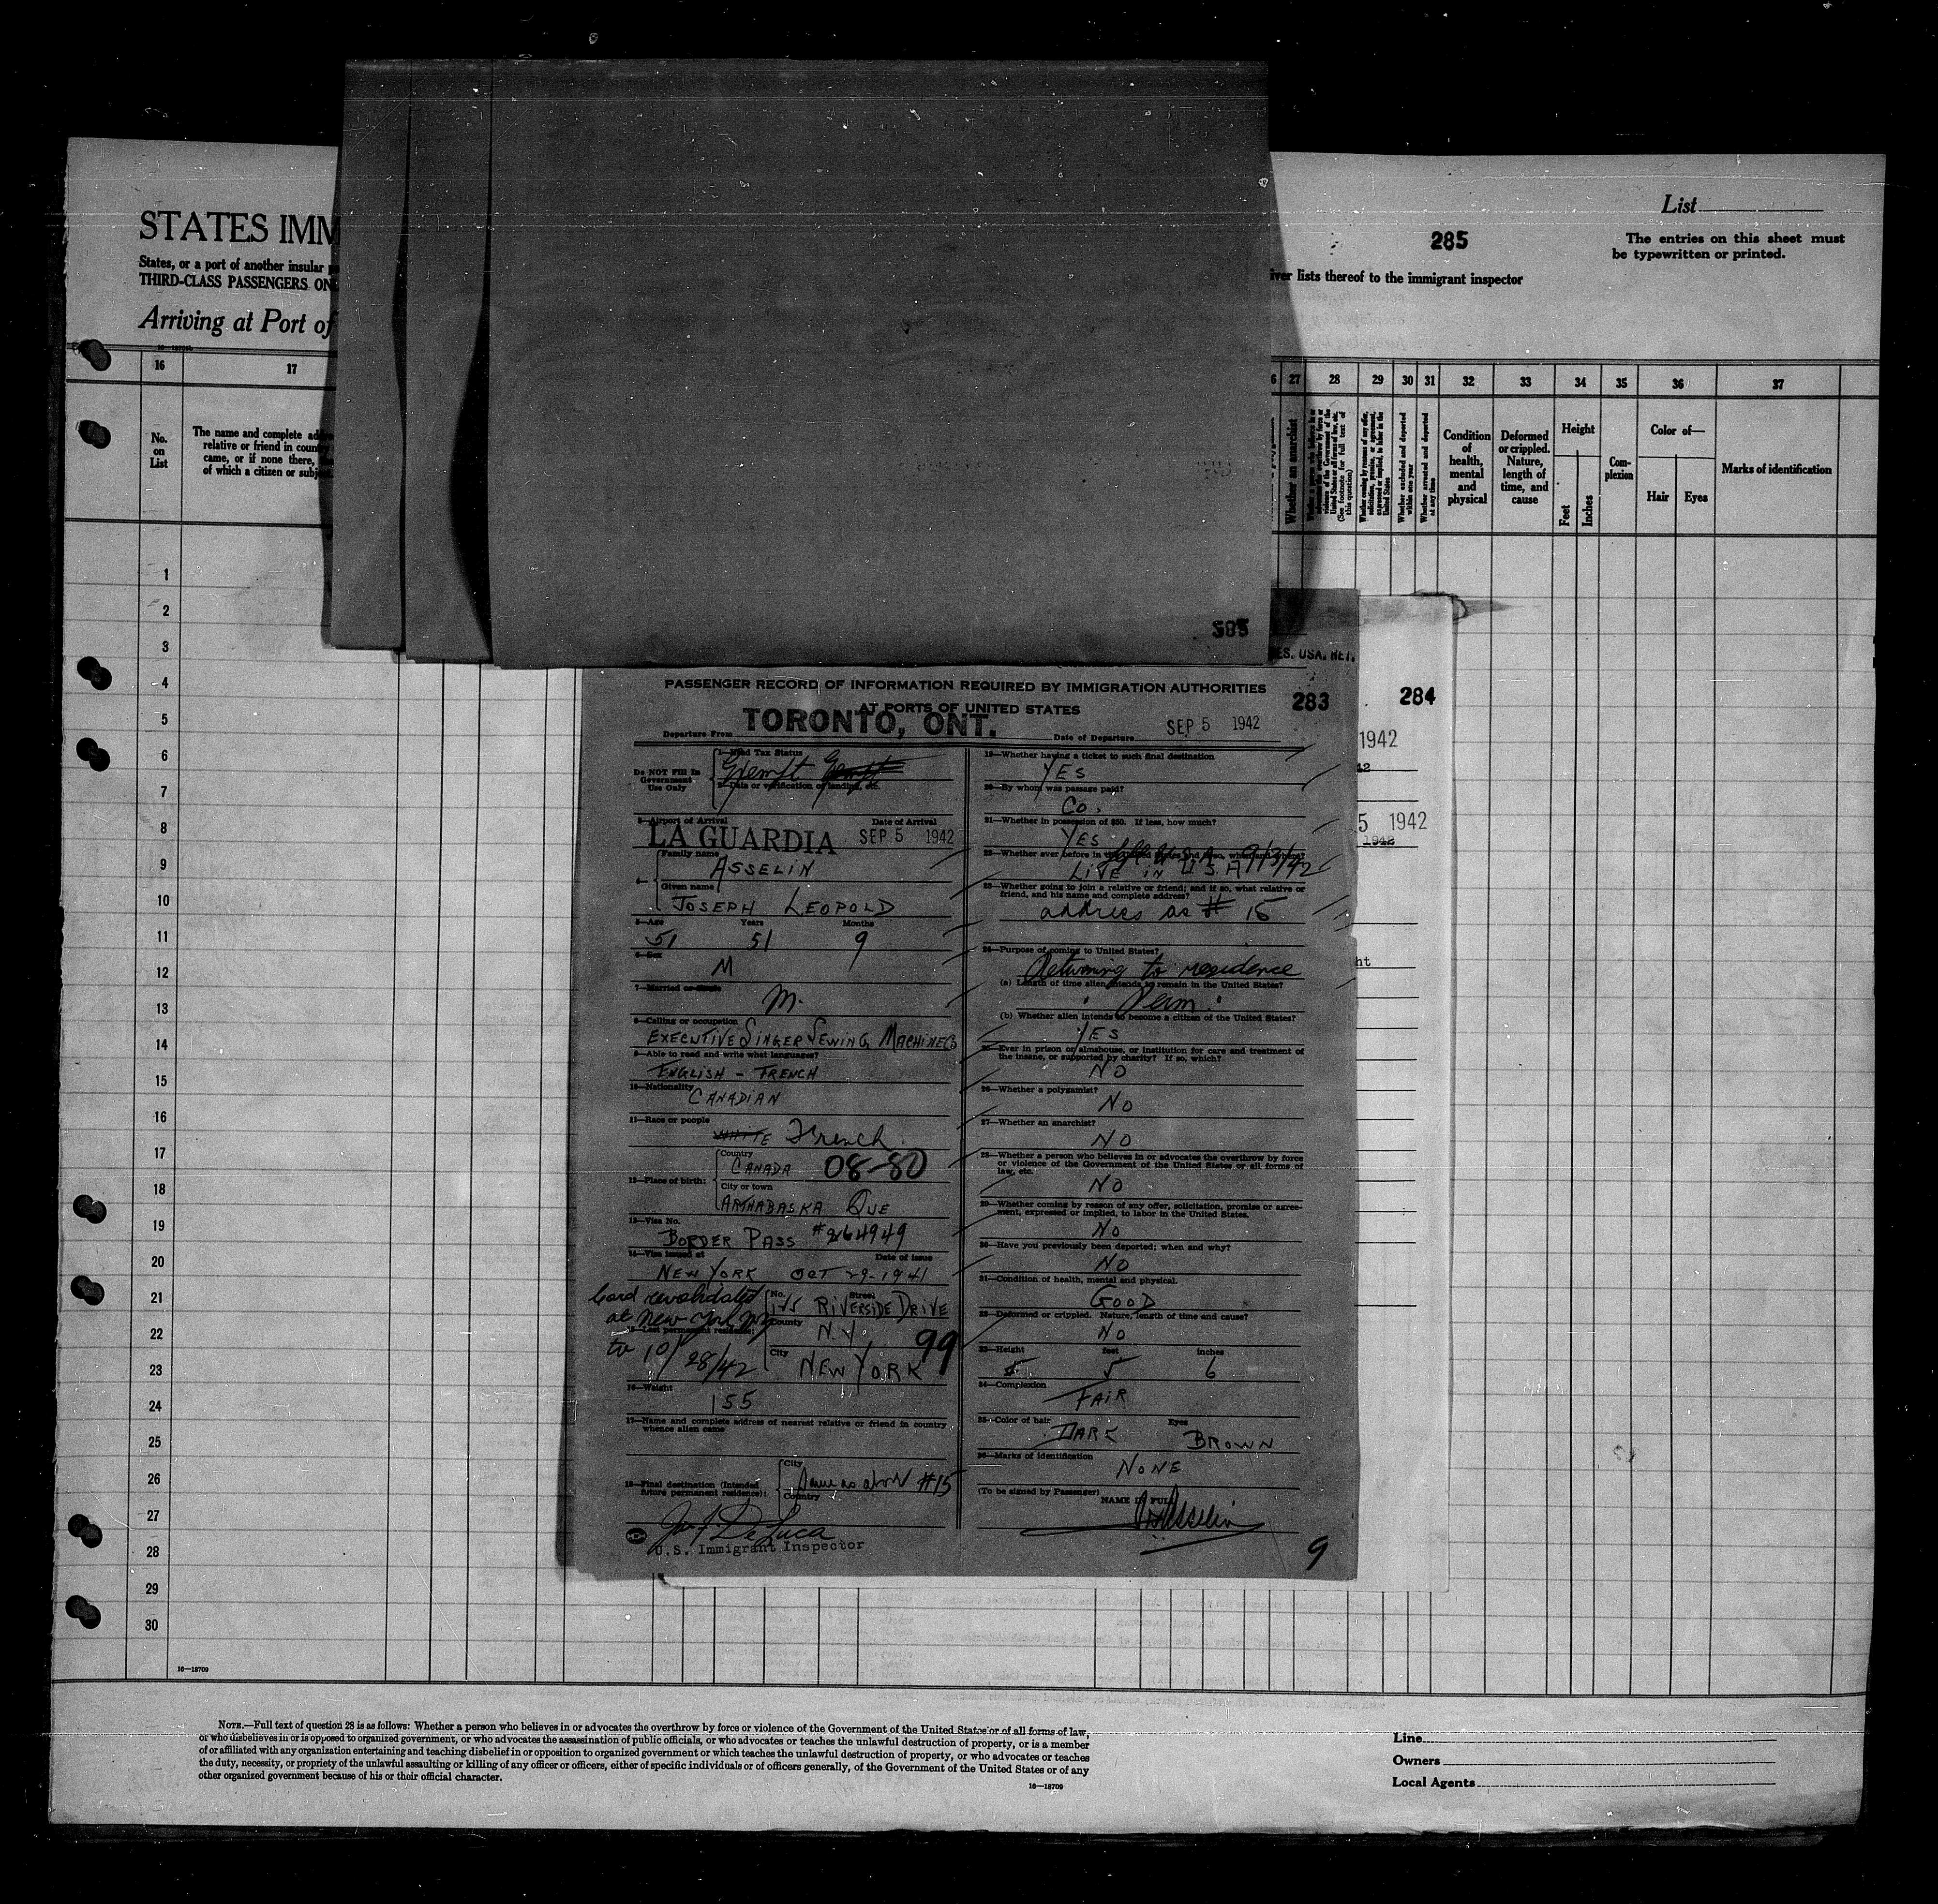 STATES IMM
States, or a port of another insular
THIRD-CLASS PASSENGERS ON
Arriving at Port of
List
285
The entries on this sheet must
be typewritten or printed.
iver lists thereof to the immigrant inspector
16 17
No.
on
List
The name and complete add
relative or friend in country
came, or if none there,
of which a citizen or subj
27 28 29 30 31 32 33 34 35 36 37
Whether an anarchist
(See footnote for full text of
this question)
Whether excluded and deported
within one year
Whether arrested and deported
at any time
Condition
of
health,
mental
and
physical
Deformed
or crippled.
Nature,
length of
time, and
cause
Height
Feet
Inches
Com-
plexion
Color of—
Hair Eyes
Marks of identification
1
2
3
4
5
6
7
8
9
10
11
12
13
14
15
16
17
18
19
20
21
22
23
24
25
26
27
28
29
30
16—18709
585
ES. USA. RET.
284
1942
5 1942
1942
ht
PASSENGER RECORD OF INFORMATION REQUIRED BY IMMIGRATION AUTHORITIES
AT PORTS OF UNITED STATES
283
Departure From TORONTO, ONT. Date of Departure SEP 5 1942
Do NOT Fill In
Government
Use Only
1—Head Tax Status
Exempt
2—Data or verification of landing, etc.
3—Airport of Arrival Date of Arrival
LA GUARDIA SEP 5 1942
4—
Family name
ASSELIN
Given name
JOSEPH LEOPOLD
5—Age Years Months
51 51 9
6—Sex
M
7—Married or single
M.
8—Calling or occupation
EXECUTIVE SINGER SEWING MACHINE CO
9—Able to read and write what languages?
ENGLISH - FRENCH
10—Nationality
CANADIAN
11—Race or people
WHITE French.
12—Place of birth:
Country
CANADA 08-80
City or town
ARTHABASKA QUE
13—Visa No.
BORDER PASS #264949
14—Visa issued at Date of issue
NEW YORK OCT 29-1941
Card revalidated
at New York NY
to 10/28/42
15—Last permanent residence:
No. Street
RIVERSIDE DRIVE
County
N.Y. 99
City
NEW YORK
16—Weight
155
17—Name and complete address of nearest relative or friend in country
whence alien came
18—Final destination (Intended
future permanent residence):
City
Same as above #15
Country
U.S. Immigrant Inspector
19—Whether having a ticket to such final destination
YES
20—By whom was passage paid?
Co.
21—Whether in possession of $50. If less, how much?
YES
22—Whether ever before in the United States and if so, when and where?
left U.S.A. 9/3/42
LIVE IN U.S.A
23—Whether going to join a relative or friend; and if so, what relative or
friend, and his name and complete address?
address as # 15
24—Purpose of coming to United States?
Returning to residence
(a) Length of time alien intends to remain in the United States?
Perm.
(b) Whether alien intends to become a citizen of the United States?
YES
25—Ever in prison or almshouse, or institution for care and treatment of
the insane, or supported by charity? If so, which?
NO
26—Whether a polygamist?
NO
27—Whether an anarchist?
NO
28—Whether a person who believes in or advocates the overthrow by force
or violence of the Government of the United States or all forms of
law, etc.
NO
29—Whether coming by reason of any offer, solicitation, promise or agree-
ment, expressed or implied, to labor in the United States.
NO
30—Have you previously been deported; when and why?
NO
31—Condition of health, mental and physical.
GOOD
32—Deformed or crippled. Nature, length of time and cause?
NO
33—Height feet inches
5 5 6
34—Complexion
FAIR
35—Color of hair Eyes
DARK BROWN
36—Marks of identification
NONE
(To be signed by Passenger)
NAME IN FULL
Asselin
9
NOTE.—Full text of question 28 is as follows: Whether a person who believes in or advocates the overthrow by force or violence of the Government of the United States or of all forms of law,
or who disbelieves in or is opposed to organized government, or who advocates the assassination of public officials, or who advocates or teaches the unlawful destruction of property, or is a member
of or affiliated with any organization entertaining and teaching disbelief in or opposition to organized government or which teaches the unlawful destruction of property, or who advocates or teaches
the duty, necessity, or propriety of the unlawful assaulting or killing of any officer or officers, either of specific individuals or of officers generally, of the Government of the United States or of any
other organized government because of his or their official character.
16—18709
Line
Owners
Local Agents